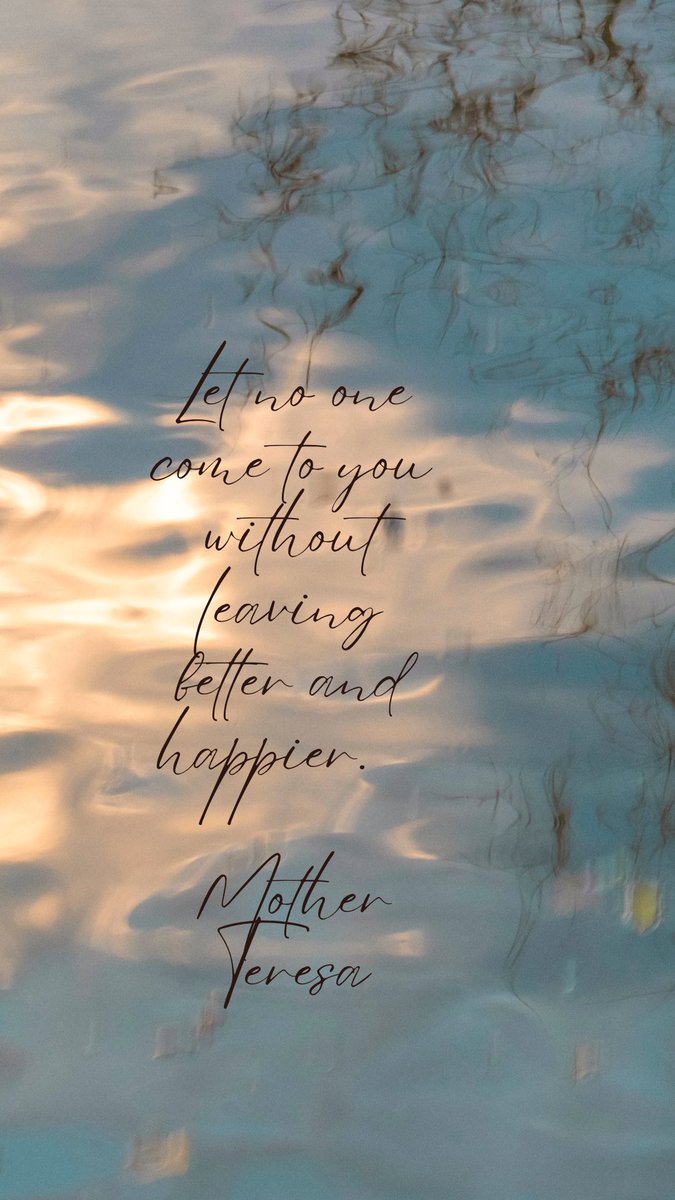 Let no one
come to you
without
leaving
better and
happier.
Mother
Teresa